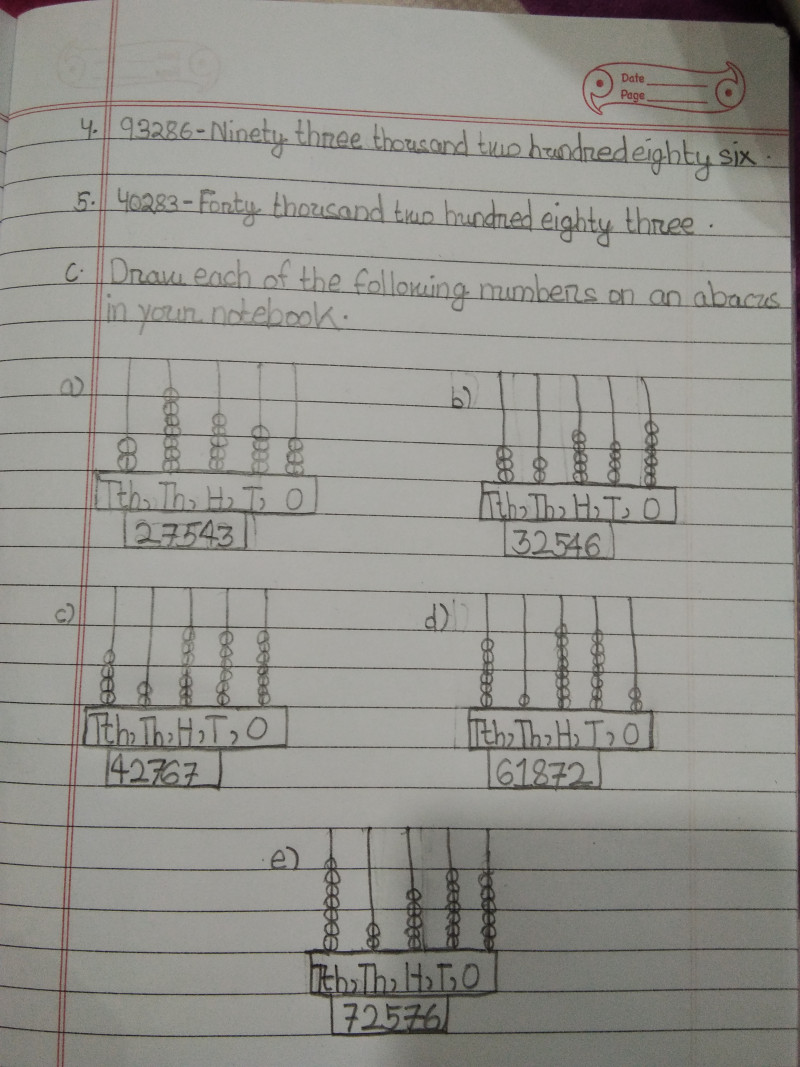 Date
Page
4. 93286-Ninety three thousand two hundred eighty six.
5. 40283-Forty thousand two hundred eighty three.
C. Draw each of the following numbers on an abacus
in your notebook.
a)
b)
Tth, Th, H, T, O
Tth, Th, H, T, O
27543
32546
c)
d)
Tth, Th, H, T, O
Tth, Th, H, T, O
42767
61872
e)
Tth, Th, H, T, O
72576